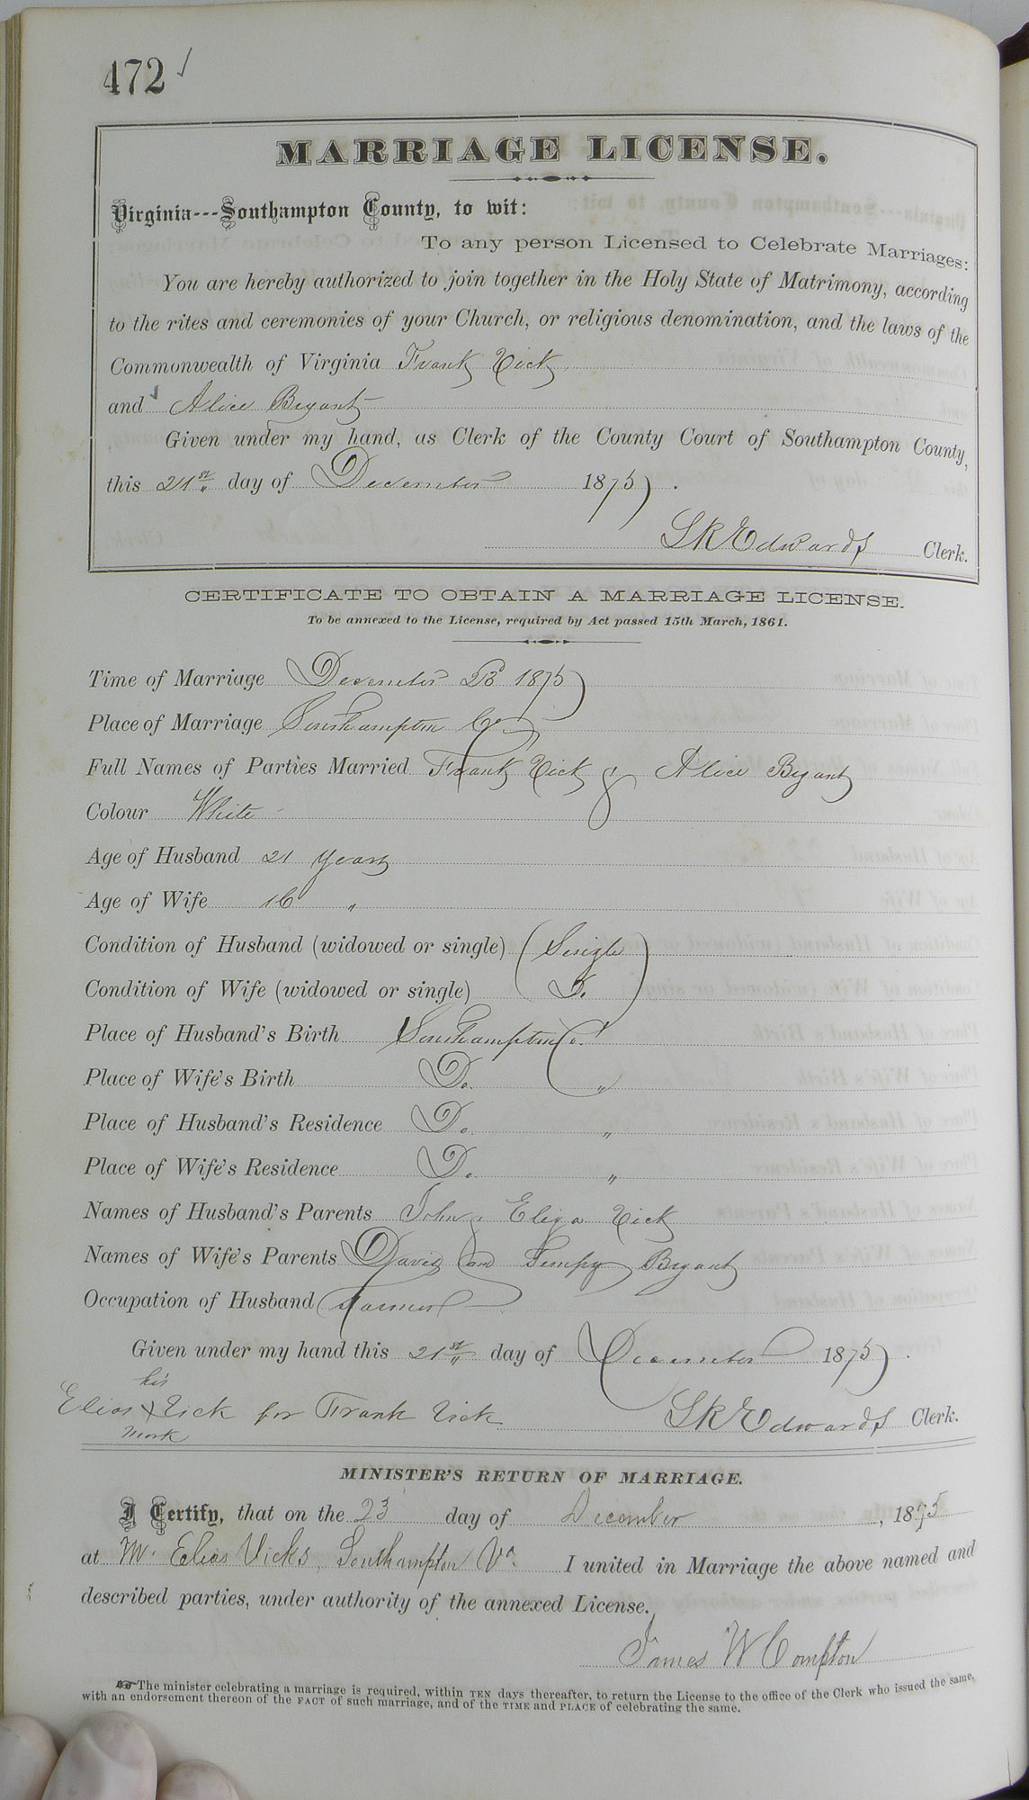 472 ✓
MARRIAGE LICENSE.
Virginia---Southampton County, to wit:
To any person Licensed to Celebrate Marriages:
You are hereby authorized to join together in the Holy State of Matrimony, according
to the rites and ceremonies of your Church, or religious denomination, and the laws of the
Commonwealth of Virginia Frank Vick
and Alice Bryant
Given under my hand, as Clerk of the County Court of Southampton County,
this 21st day of December 1875.
L R Edwards Clerk.
CERTIFICATE TO OBTAIN A MARRIAGE LICENSE.
To be annexed to the License, required by Act passed 15th March, 1861.
Time of Marriage December 23 1875
Place of Marriage Southampton Co
Full Names of Parties Married Frank Vick & Alice Bryant
Colour White
Age of Husband 21 years
Age of Wife 16 "
Condition of Husband (widowed or single) Single
Condition of Wife (widowed or single) D.
Place of Husband's Birth Southampton Co.
Place of Wife's Birth Do. "
Place of Husband's Residence Do. "
Place of Wife's Residence Do. "
Names of Husband's Parents John & Eliza Vick
Names of Wife's Parents David and Bryant
Occupation of Husband Farmer
Given under my hand this 21st day of December 1875.
his
Elias X Vick for Frank Vick L R Edwards Clerk.
mark
MINISTER'S RETURN OF MARRIAGE.
I Certify, that on the 23 day of December, 1875
at Mr. Elias Vicks, Southampton Va. I united in Marriage the above named and
described parties, under authority of the annexed License.
James W Compton
The minister celebrating a marriage is required, within TEN days thereafter, to return the License to the office of the Clerk who issued the same,
with an endorsement thereon of the FACT of such marriage, and of the TIME and PLACE of celebrating the same.